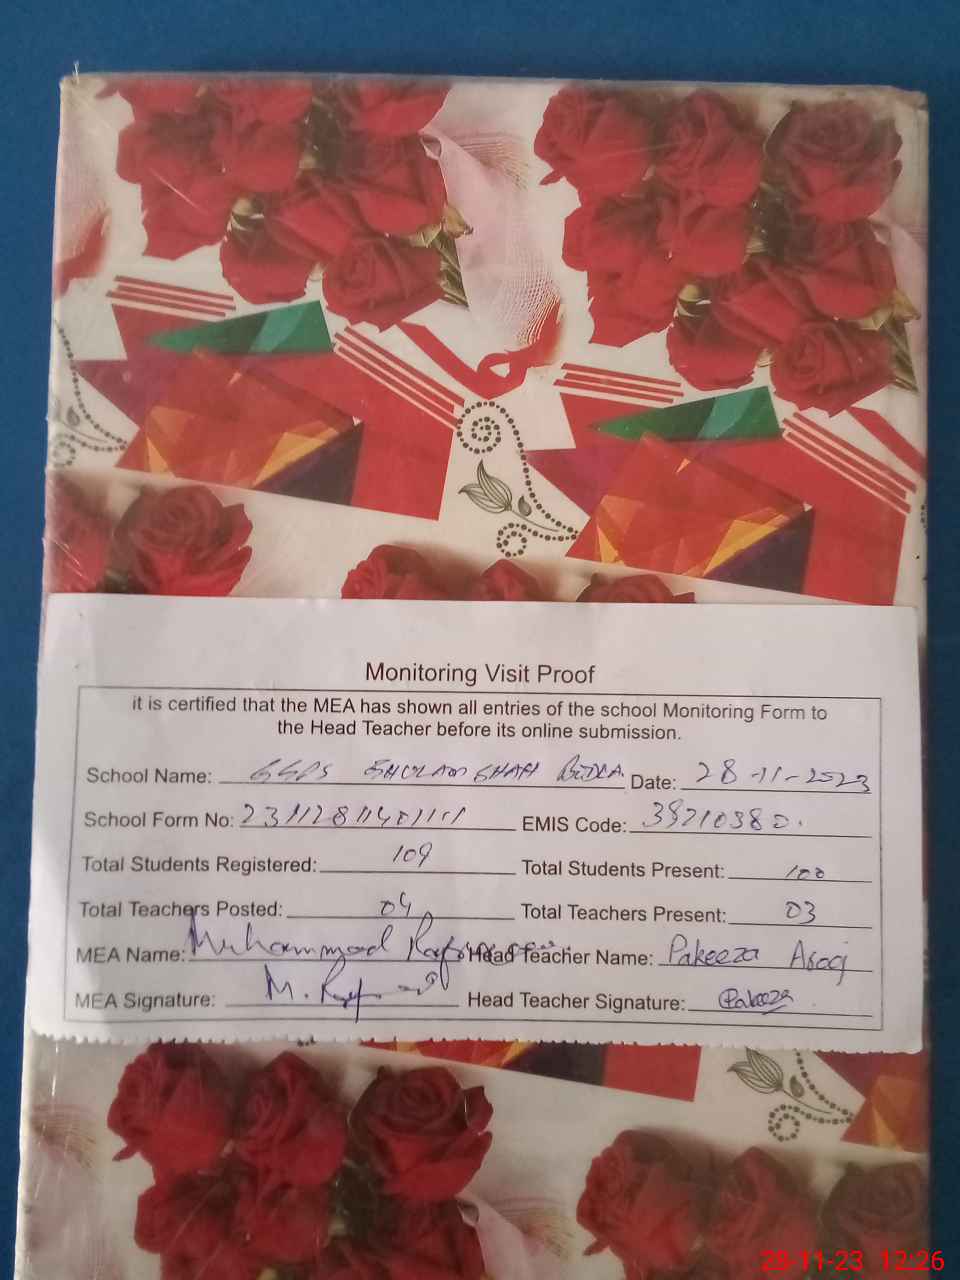 Monitoring Visit Proof
it is certified that the MEA has shown all entries of the school Monitoring Form to
the Head Teacher before its online submission.
School Name: GGPS GHULAM SHAH Date: 28-11-2023
School Form No: EMIS Code: 38210380.
Total Students Registered: 109 Total Students Present: 100
Total Teachers Posted: 04 Total Teachers Present: 03
MEA Name: Muhammad Head Teacher Name: Pakeeza
MEA Signature: M. Head Teacher Signature: Pakeeza
28-11-23 12:26